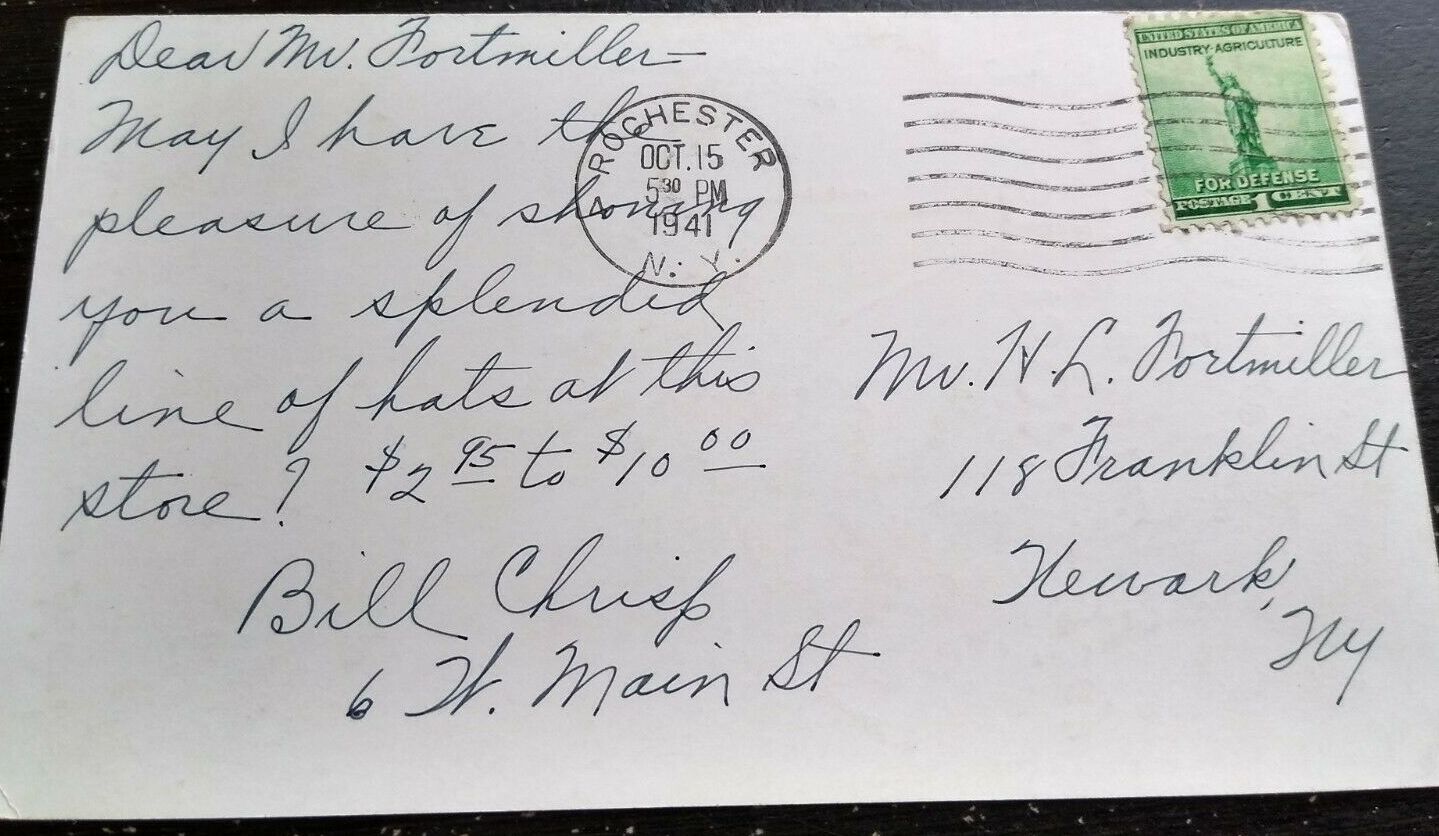 Dear Mr. Fortmiller—
May I have the
pleasure of showing
you a splendid
line of hats at this
store? $2 95 to $10 00
Bill Chrisp
6 W. Main St
ROCHESTER
OCT. 15
5 30 PM
1941
N. Y.
UNITED STATES OF AMERICA
INDUSTRY-AGRICULTURE
FOR DEFENSE
POSTAGE 1 CENT
Mr. H. L. Fortmiller
118 Franklin St
Newark,
NY